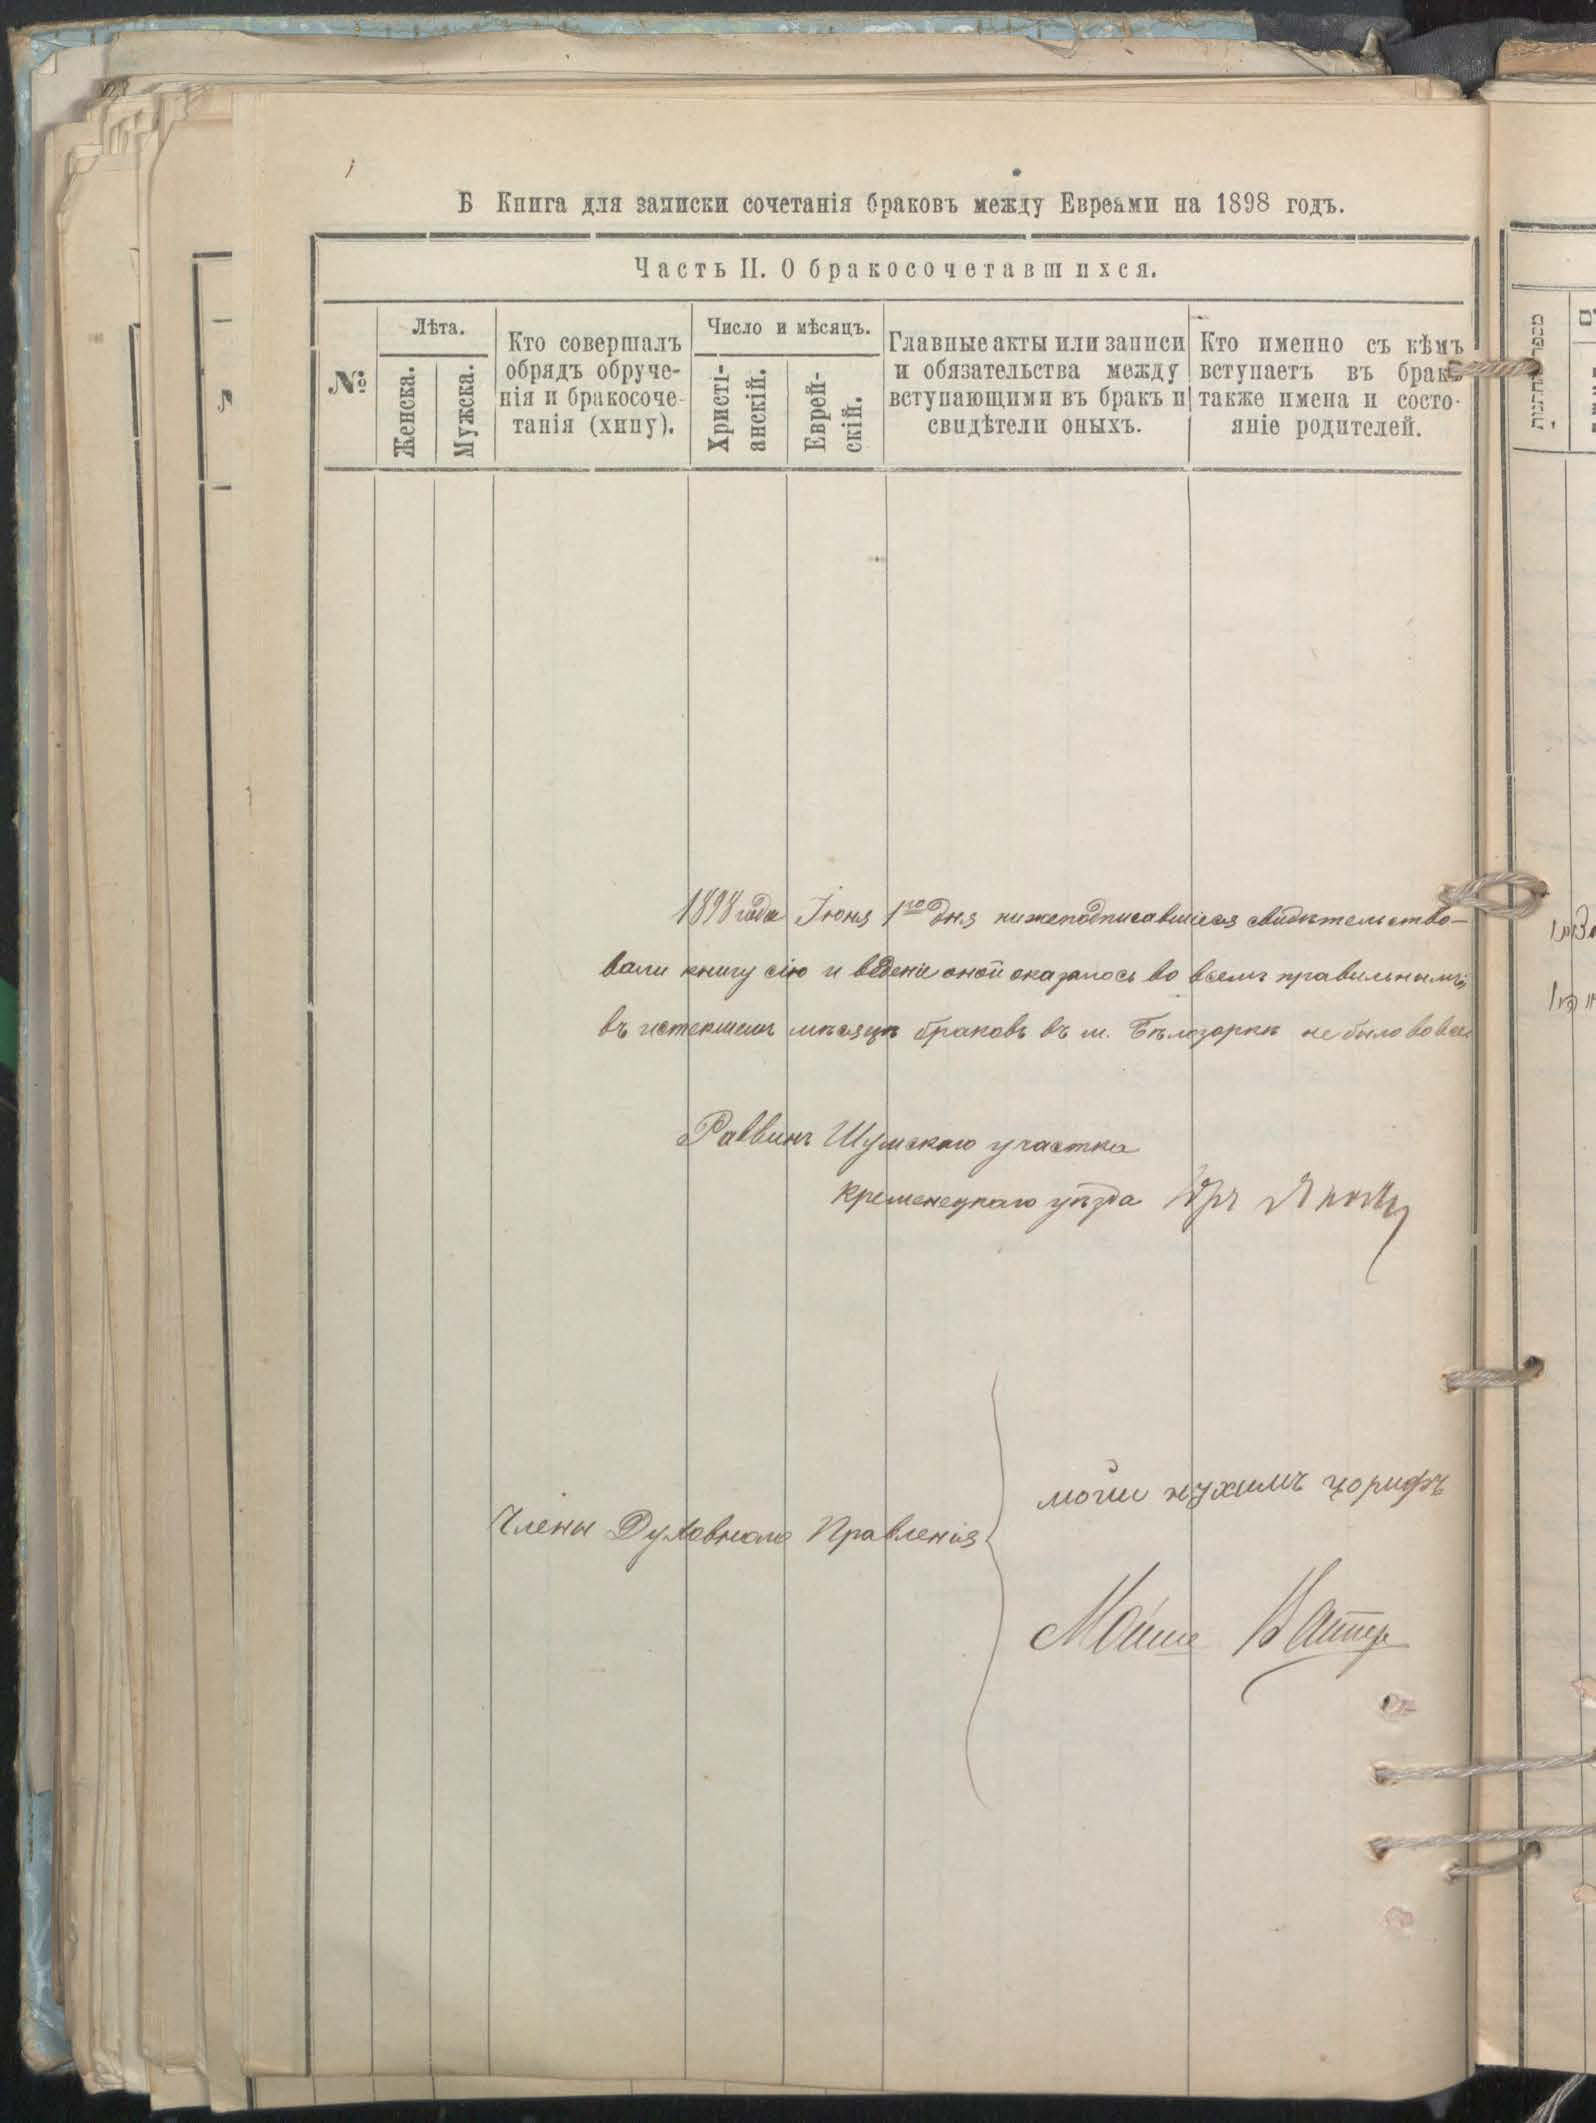 Б Книга для записки сочетанія браковъ между Евреями на 1898 годъ.
Часть II. О бракосочетавшихся.
№
Лѣта.
Женска.
Мужска.
Кто совершалъ
обрядъ обруче-
нія и бракосоче-
танія (хипу).
Число и мѣсяцъ.
Христі-
анскій.
Еврей-
скій.
Главные акты или записи
и обязательства между
вступающими въ бракъ и
свидѣтели оныхъ.
Кто именно съ кѣмъ
вступаетъ въ бракъ
также имена и состо-
яніе родителей.
1898 года Іюня 1го дня нижеподписавшіеся свидѣтельство-
вали книгу сію и веденіе оной оказалось во всемъ правильнымъ;
въ истекшемъ мѣсяцѣ браковъ въ м. Бѣлозоркѣ не было вовсе
Раввинъ Шумскаго участка
Кременецкаго уѣзда
Члены Духовнаго Правленія
нухимъ цорифъ
Мойше